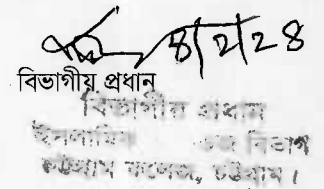 ৪/2/28
বিভাগীয় প্রধান
বিভাগীয় প্রধান
ইসলামিক বিভাগ
চট্টগ্রাম কলেজ, চট্টগ্রাম।